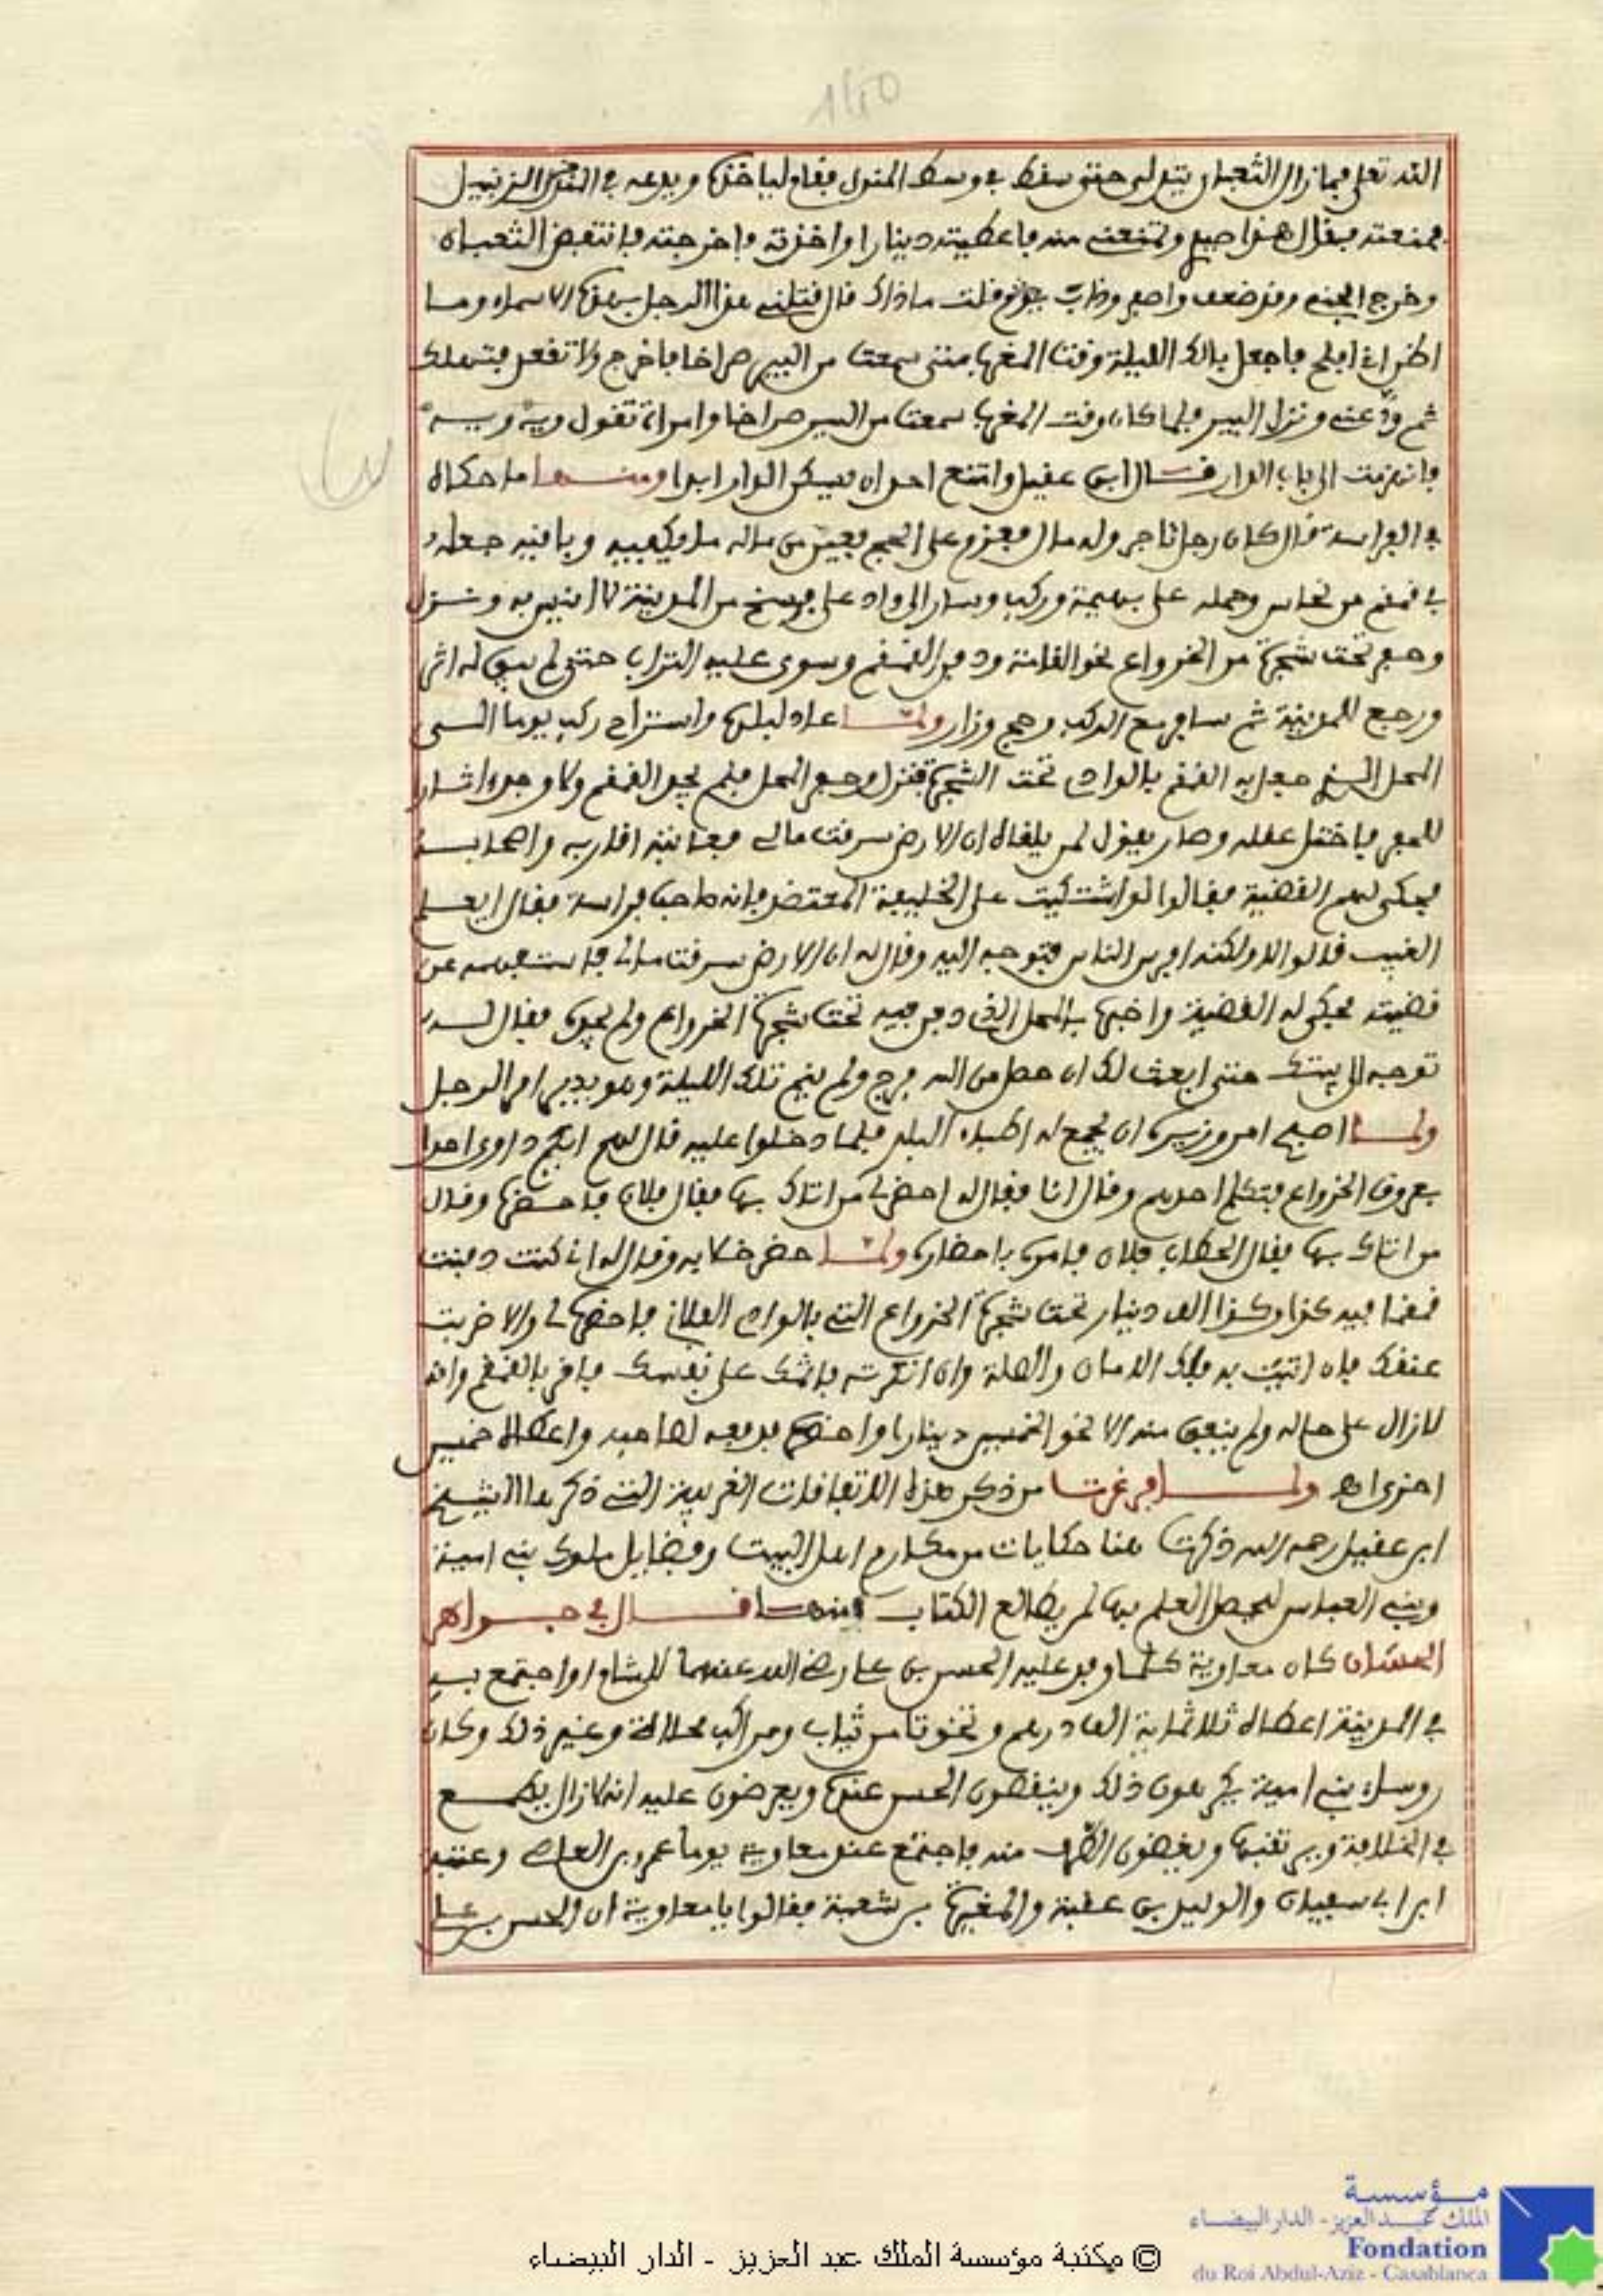 140
الله تعلى فما زال الثعبان يتدلى حتى سقط في وسط المنزل فقام لياخذه ويدعه في الزنبيل
فمنعته فقال هذا صيدي وتمنعني منه فاعطيته دينارا واخذته واخرجته فانتفض الثعبان
وخرج الجني وقد ضعف واصفر وذاب فقلت ماذاك قال قتلني هذا الرجل بهذه الاسماء وما
اظن اني افلح فاجعل بالك الليلة وقت المغرب متى سمعت من البير صراخا فاخرج ولا تقعد فتهلك
ثم ودعني ونزل البير فلما كان وقت المغرب سمعت من البير صراخا وامراة تقول ويه ويه
فانهزمت الى باب الدار قال ابن عقيل وامتنع احد ان يسكن الدار ابدا ومنها ما حكاه
في الفراسة قال كان رجل تاجر وله مال فعزم على الحج فعين من ماله ما يكفيه وباقيه جعله
في قمقم من نحاس وحمله على بهيمة وركب وسار الى واد على فرسخ من المدينة لا انيس به ونزل
وحفر تحت شجرة من الخرواع نحو القامة ودفن القمقم وسوى عليه التراب حتى لم يبق له اثر
ورجع للمدينة ثم سافر مع الركب وحج وزار ولما عاد لبلده واستراح ركب يوما الى
المحل الذي جعل به القمقم بالوادي تحت الشجرة فنزل وحفر المحل فلم يجد القمقم ولا وجد اثار
للحفر فاختل عقله وصار يقول لمن يلقاه ان الارض سرقت مالي فعاتبه اقاربه واصحابه
فحكى لهم القضية فقالوا لو اشتكيت على الخليفة المعتضد فانه صاحب فراسة فقال ايعلم
الغيب قالوا لا ولكنه افرس الناس فتوجه اليه وقال له ان الارض سرقت مالي فاستفهمه عن
قضيته فحكى له القضية واخبره بالمحل الذي دفن فيه تحت شجرة الخرواع ولم يجده فقال له
توجه الى بيتك حتى ابعث لك ان حصل من الله فرج ولم ينم تلك الليلة وهو يدبر امر الرجل
ولما اصبح امر وزيره ان يجمع له اطباء البلد فلما دخلوا عليه قال لهم ايكم داوى احدا
بعروق الخرواع فتكلم احدهم وقال انا فقال له احضر لي من اتاك بها فقال فلان فاحضره وقال
من اتاك بها فقال الحطاب فلان فامره باحضاره ولما حضر خلا به وقال له اني كنت دفنت
قمقما فيه كذا وكذا الف دينار تحت شجرة الخرواع التي بالوادي الفلاني فاحضره لي والا ضربت
عنقك فان اتيت به فلك الامان والصلة وان انكرت فاثمك على نفسك فاقر بالقمقم وانه
لازال على حاله ولم ينفق منه الا نحو الخمسين دينارا واحضره فدفعه لصاحبه واعطاه خمسين
اخرى اهـ ولما فرغت من ذكر هذه الاتفاقات الغريبة التي ذكرها الشيخ
ابن عقيل رحمه الله ذكرت هنا حكايات من مكارم اهل البيت وفضايل ملوك بني امية
وبني العباس ليحصل العلم بها لمن يطالع الكتاب فمنها قال في جواهر
الحسان كان معاوية كلما وفد عليه الحسن بن علي رضي الله عنهما للشام او اجتمع به
في المدينة اعطاه ثلاثماية الف درهم وتخوتا من ثياب ومراكب محلات وغير ذلك وكان
روساء بني امية يكرهون ذلك وينقصون الحسن عنده ويعرضون عليه انه لازال يطمع
في الخلافة ويرتقبها ويغيضون الصدر منه فاجتمع عند معاوية يوما عمرو بن العاصي وعتبة
ابن ابي سفيان والوليد بن عقبة والمغيرة بن شعبة فقالوا يا معاوية ان الحسن بن علي
مؤسسة
الملك عبد العزيز - الدار البيضاء
Fondation
du Roi Abdul-Aziz - Casablanca
© مكتبة مؤسسة الملك عبد العزيز - الدار البيضاء